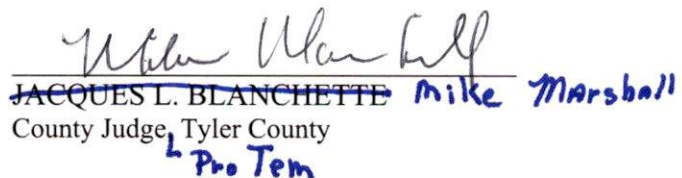 Mike Marshall
JACQUES L. BLANCHETTE Mike Marshall
County Judge, Tyler County
Pro Tem